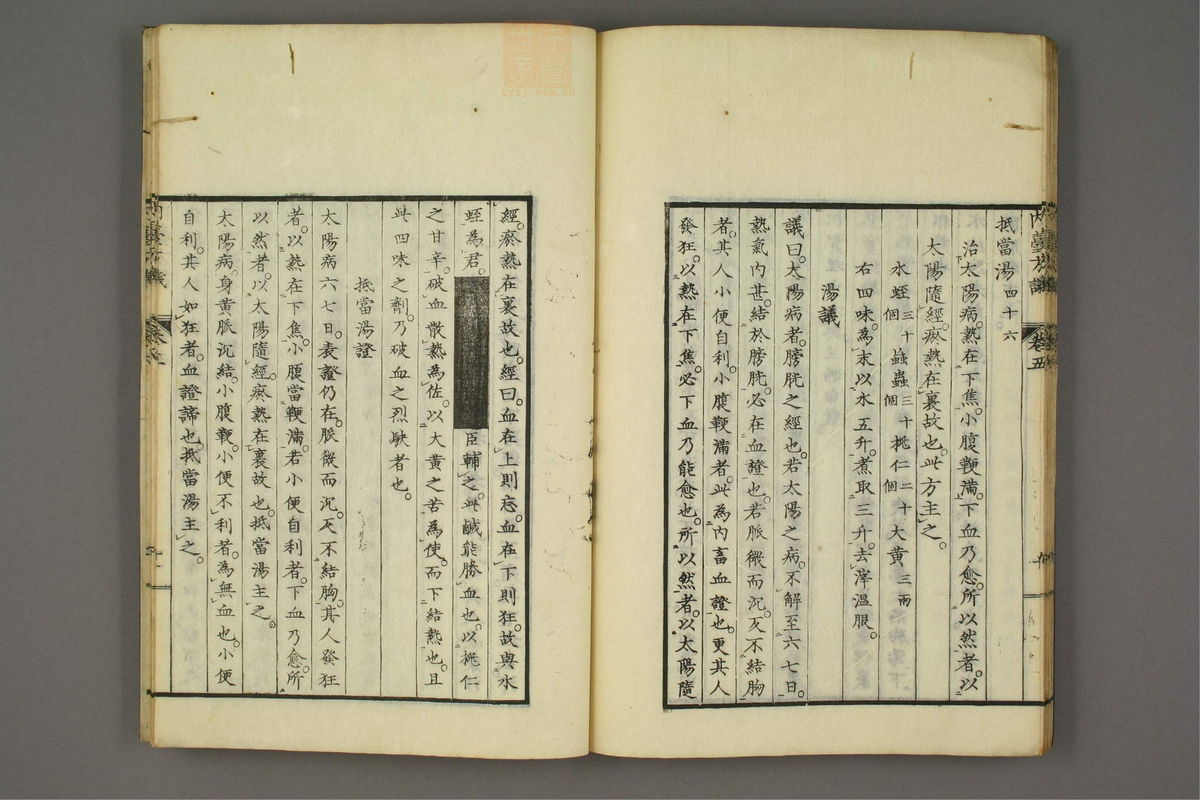 抵當湯四十六
治太陽病。熱在下焦。小腹鞕滿。下血乃愈。所以然者。以
太陽隨經。瘀熱在裏故也。此方主之。
水蛭三十個 蝱蟲三十個 桃仁二十個 大黄三兩
右四味。為末以水五升。煮取三升。去滓溫服。
湯議
議曰。太陽病者。膀胱之經也。若太陽之病。不解至六七日。
熱氣内甚。結於膀胱。必在血證也。若脈微而沉。反不結胸
者。其人小便自利。小腹鞕滿者。此為内畜血證也。更其人
發狂。以熱在下焦。必下血乃能愈也。所以然者。以太陽隨
經。瘀熱在裏故也。經曰。血在上則忘。血在下則狂。故與水
蛭為君。
臣輔之。此鹹能勝血也。以桃仁
之甘辛。破血散熱為佐。以大黄之苦為使。而下結熱也。且
此四味之劑。乃破血之烈駃者也。
抵當湯證
太陽病六七日。表證仍在。脈微而沉。反不結胸。其人發狂
者。以熱在下焦。小腹當鞕滿。若小便自利者。下血乃愈。所
以然者。以太陽隨經。瘀熱在裏故也。抵當湯主之。
太陽病。身黄脈沉結。小腹鞕。小便不利者。為無血也。小便
自利。其人如狂者。血證諦也。抵當湯主之。
内臺方議
卷五